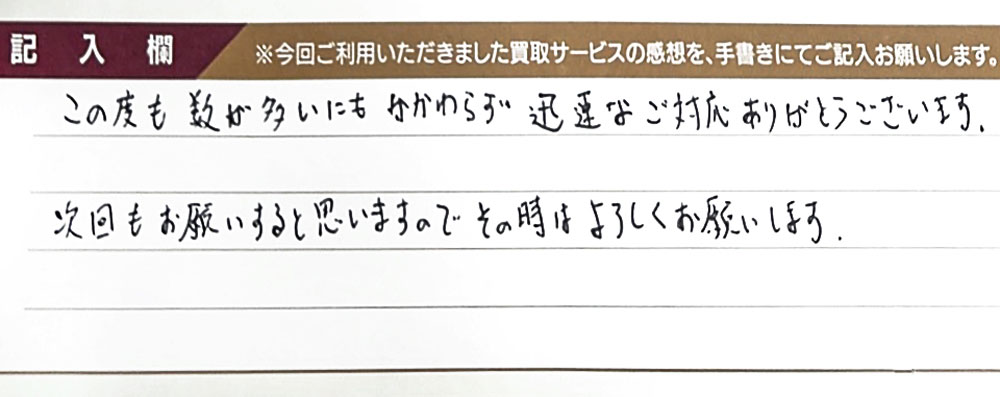 記入欄
※今回ご利用いただきました買取サービスの感想を、手書きにてご記入お願いします。
この度も数が多いにもかかわらず迅速なご対応ありがとうございます。
次回もお願いすると思いますのでその時はよろしくお願いします。